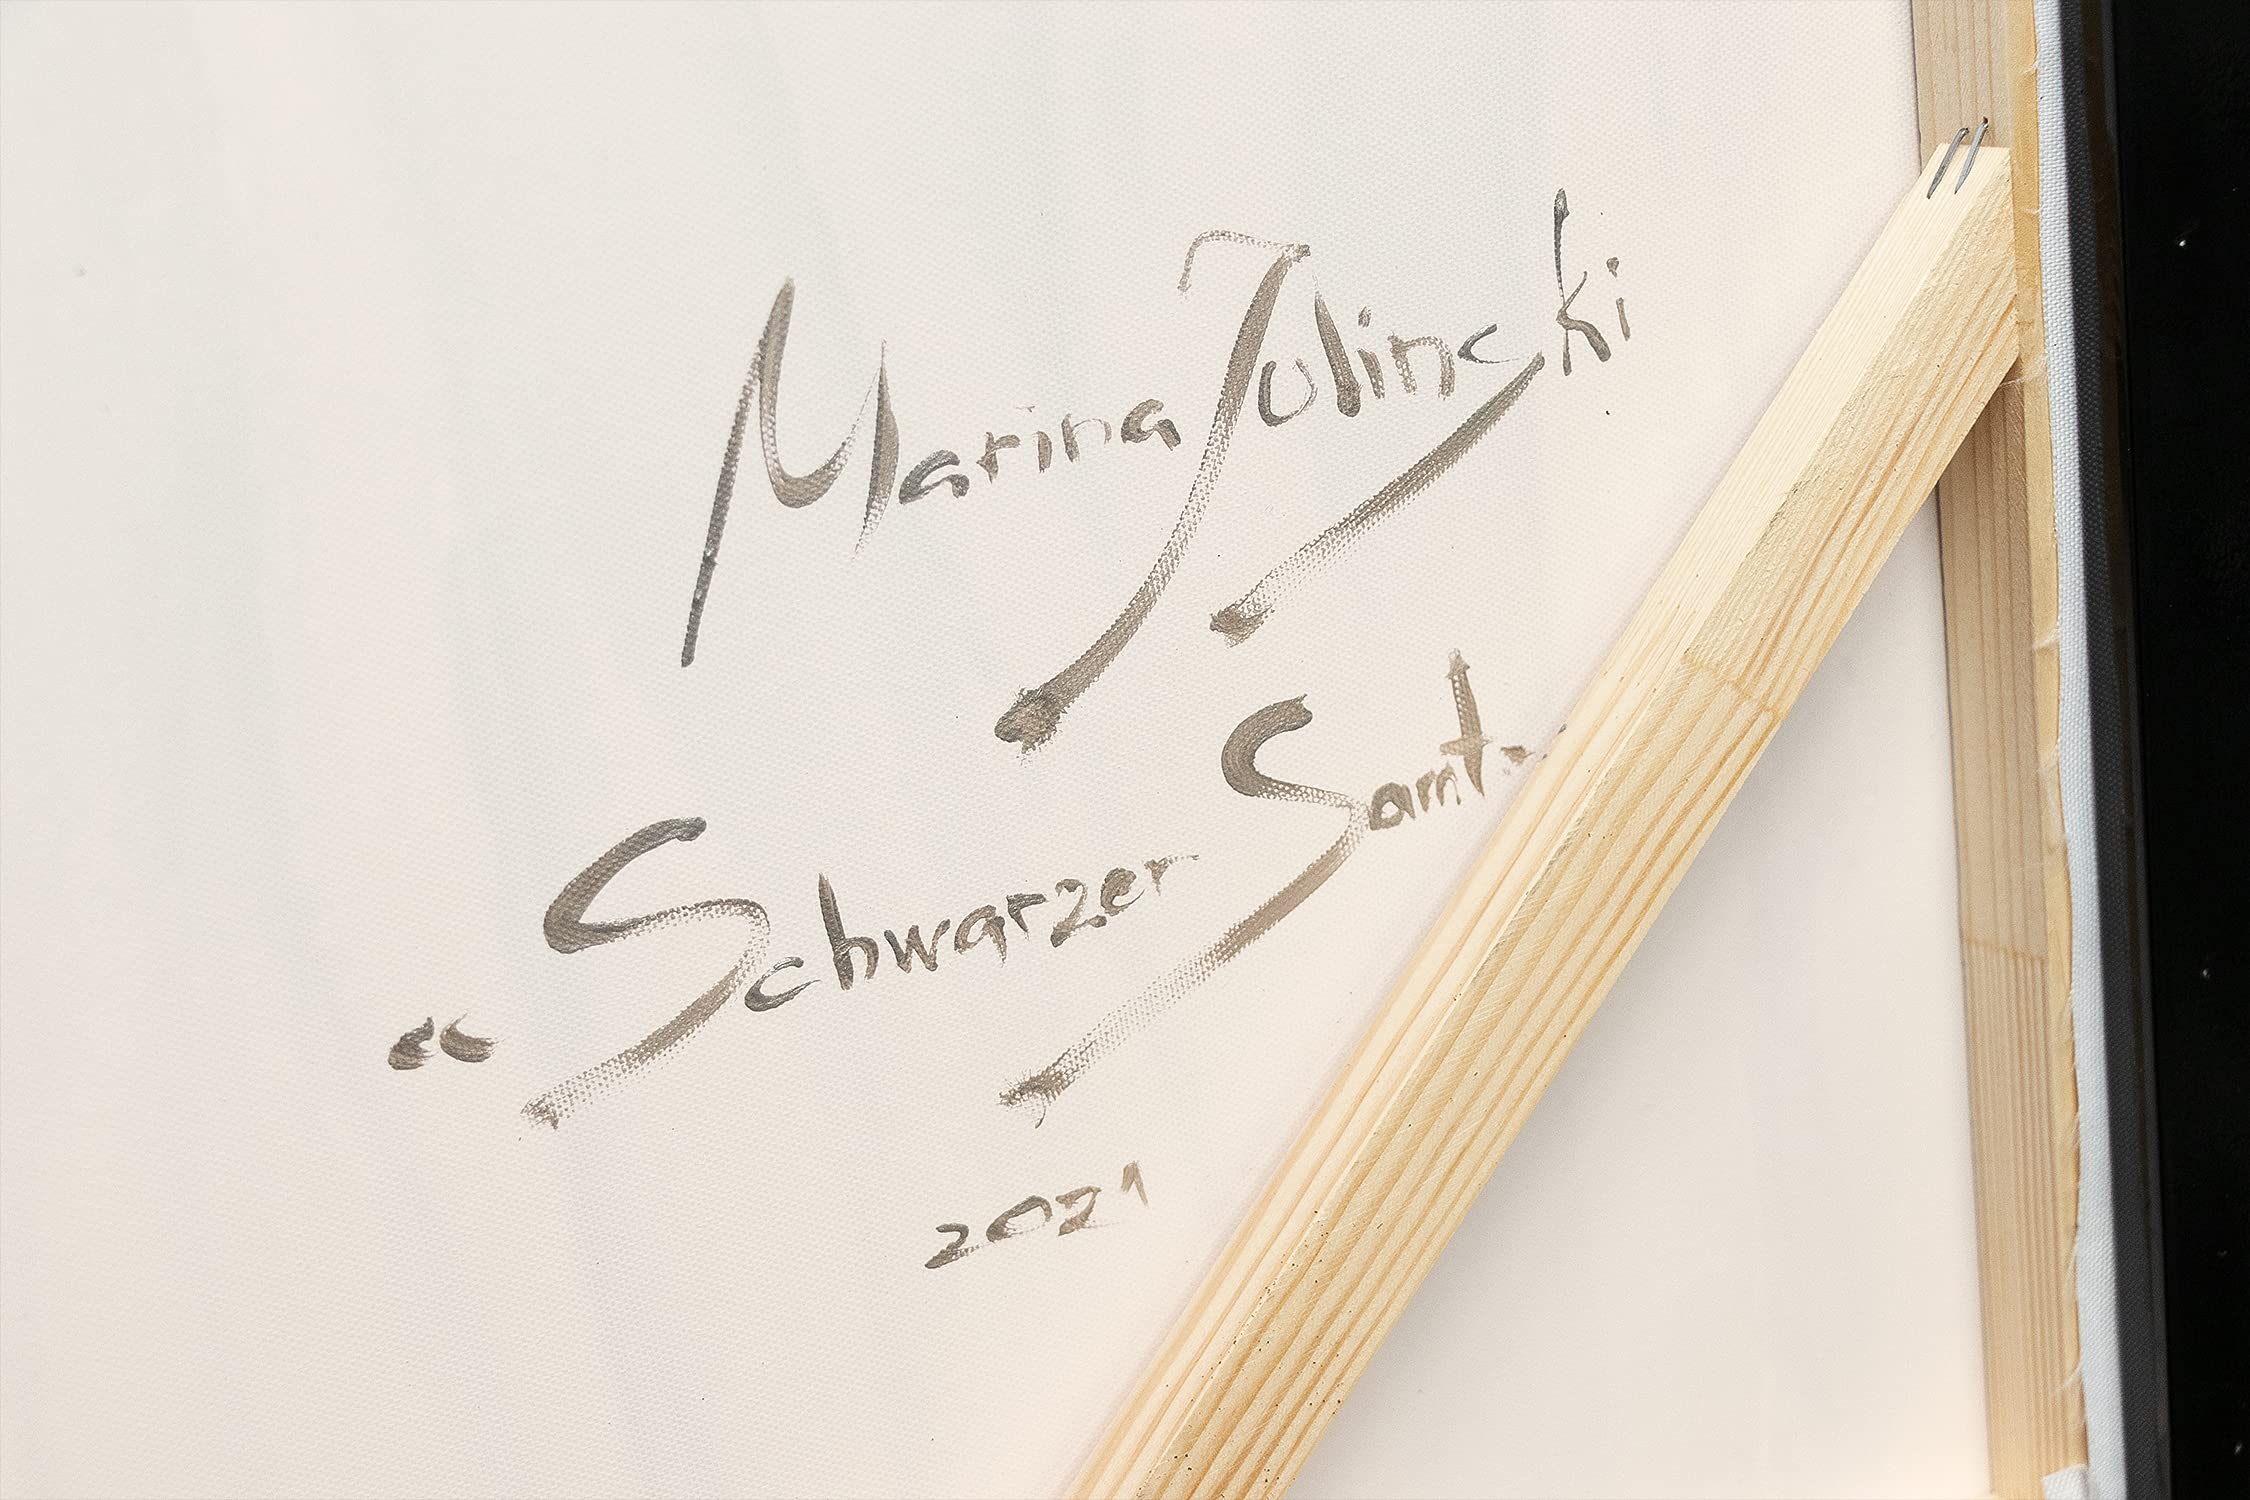 Marina Julinski
“Schwarzer Samt“
2021